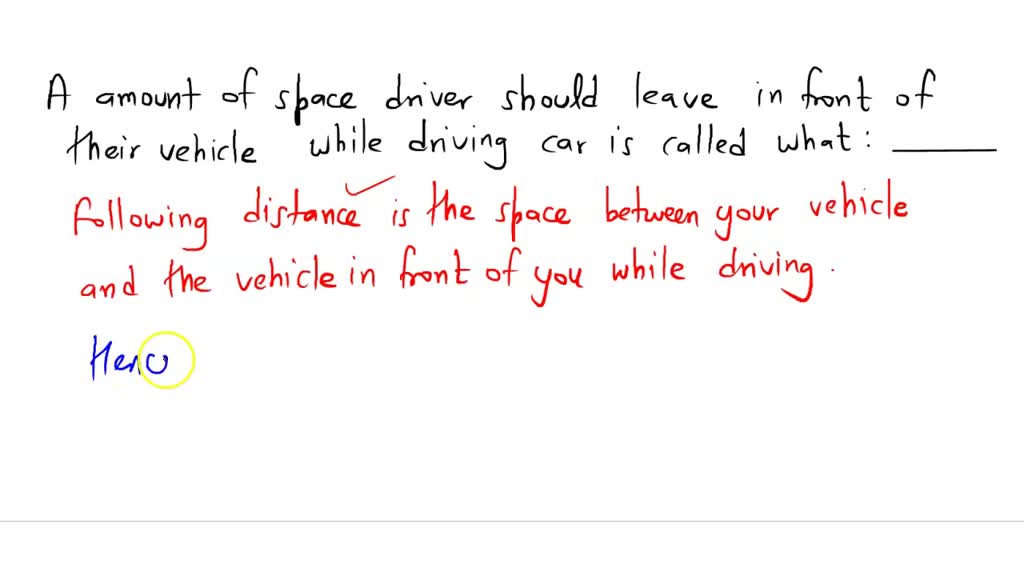 A amount of space driver should leave in front of
their vehicle while driving car is called what: ______
following distance is the space between your vehicle
and the vehicle in front of you while driving.
Henc